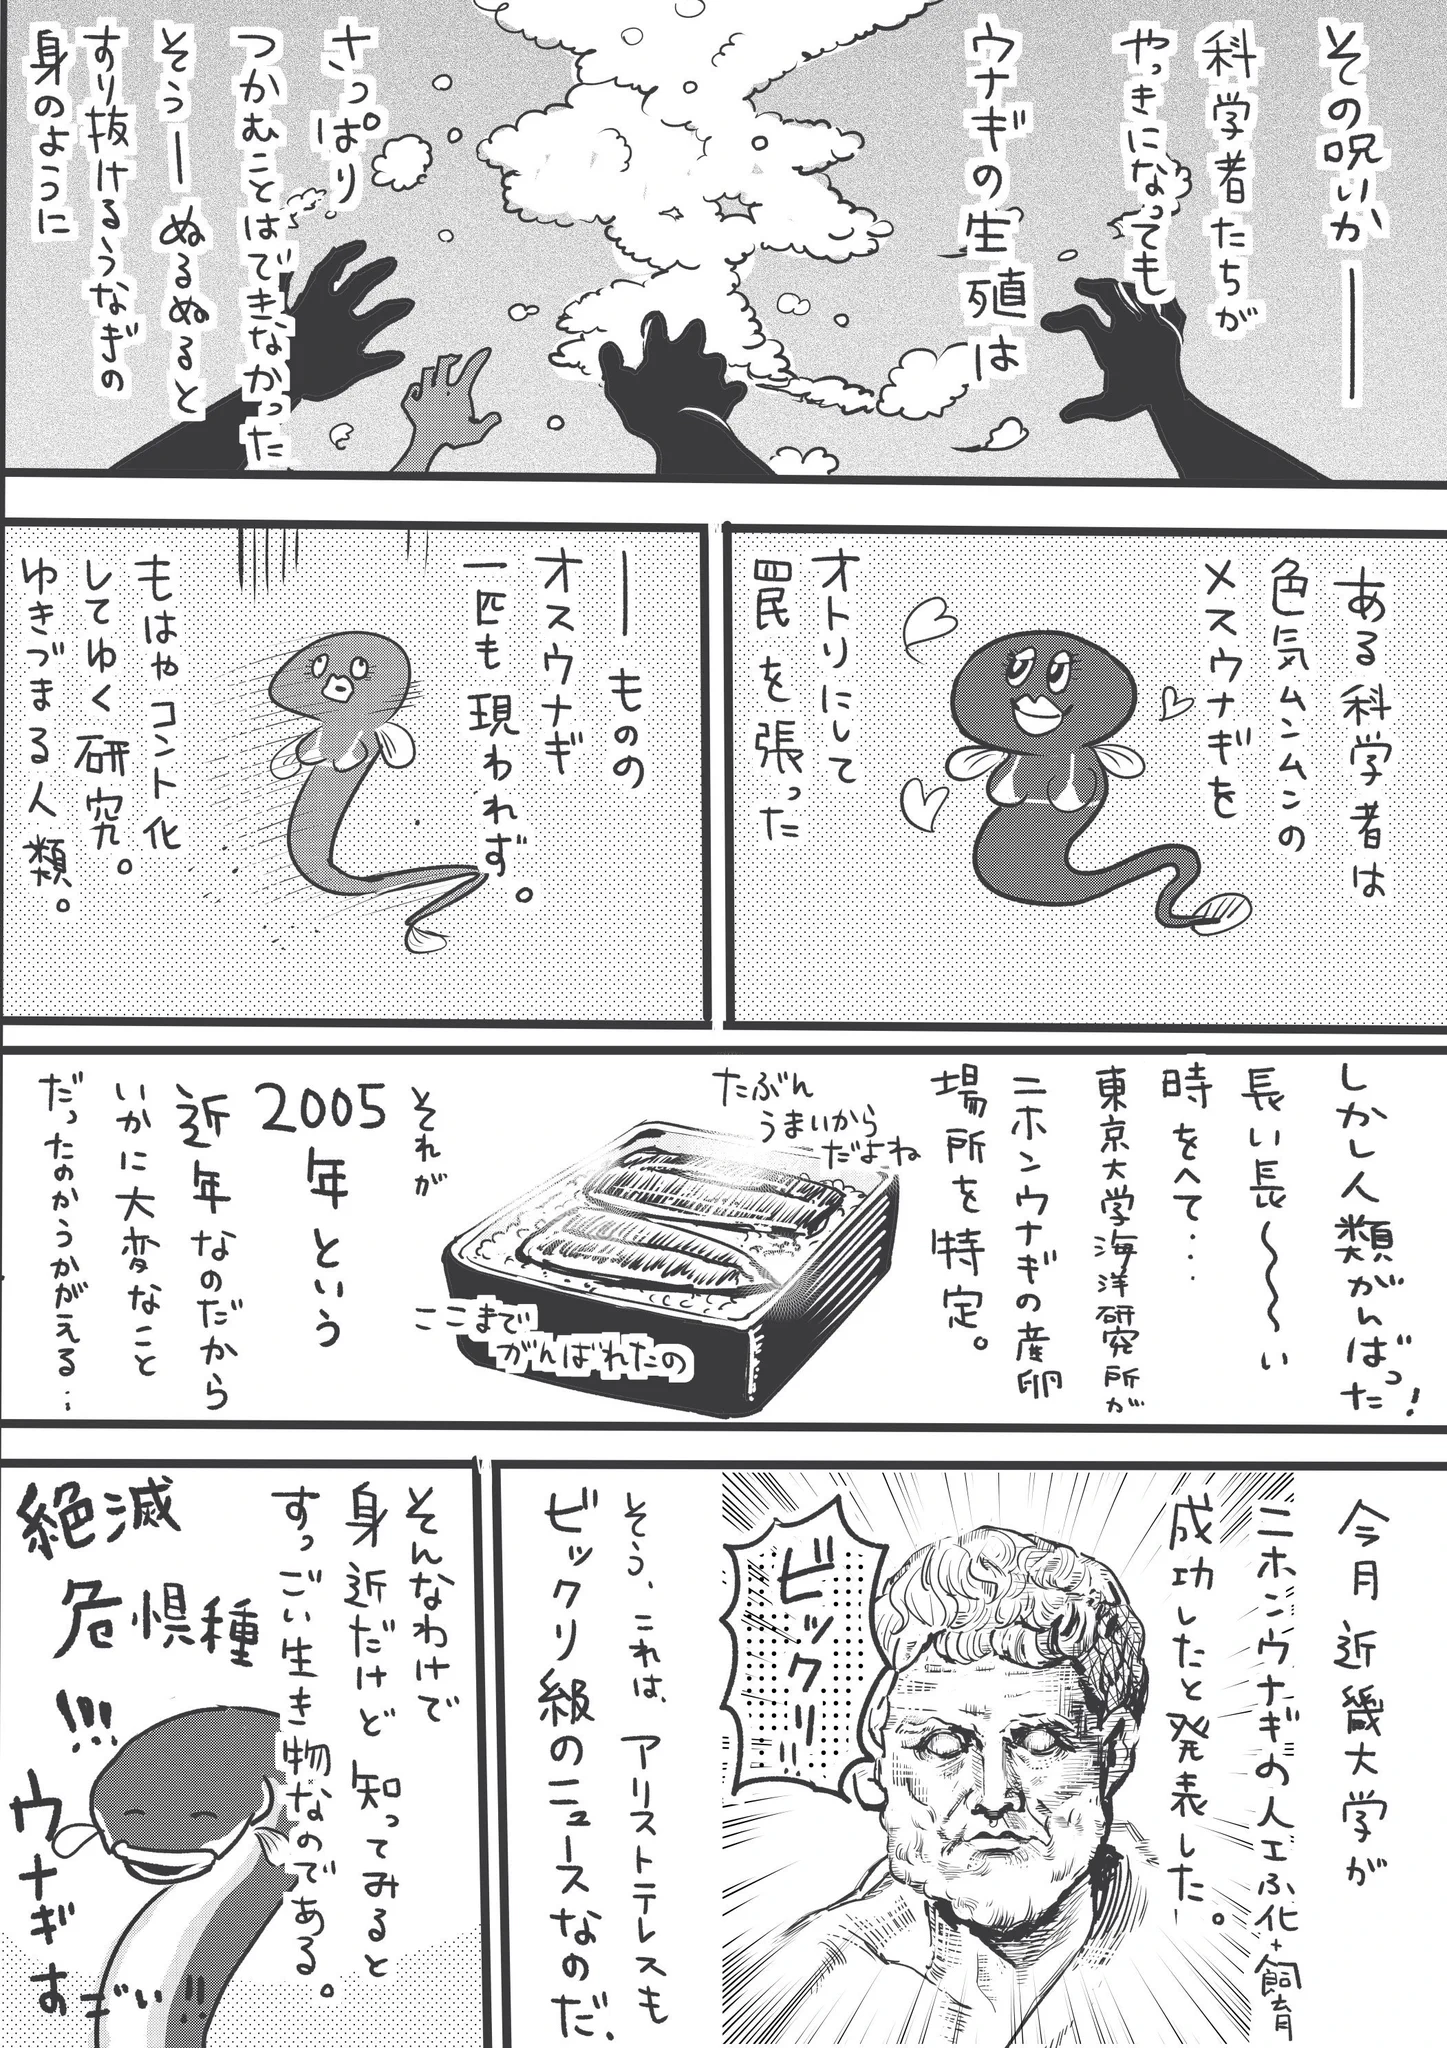 その呪いか――
科学者たちが
やっきになっても
ウナギの生殖は
さっぱり
つかむことはできなかった
そう――ぬるぬると
すり抜けるうなぎの
身のように
ある科学者は
色気ムンムンの
メスウナギを
オトリにして
罠を張った
――ものの
オスウナギ
一匹も現われず。
もはやコント化
してゆく研究。
ゆきづまる人類。
しかし人類がんばった!
長い長〜〜〜い
時をへて・・・
東京大学海洋研究所が
ニホンウナギの産卵
場所を特定。
たぶん
うまいから
だよね
ここまで
がんばれたの
それが
2005年という
近年なのだから
いかに大変なこと
だったのかうかがえる…
今月近畿大学が
ニホンウナギの人工ふ化+飼育
成功したと発表した。
ビックリ!!
そう、これは、アリストテレスも
ビックリ級のニュースなのだ.
そんなわけで
身近だけど知ってみると
すっごい生き物なのである。
絶滅
危惧種
!!!
ウナギすごい!!